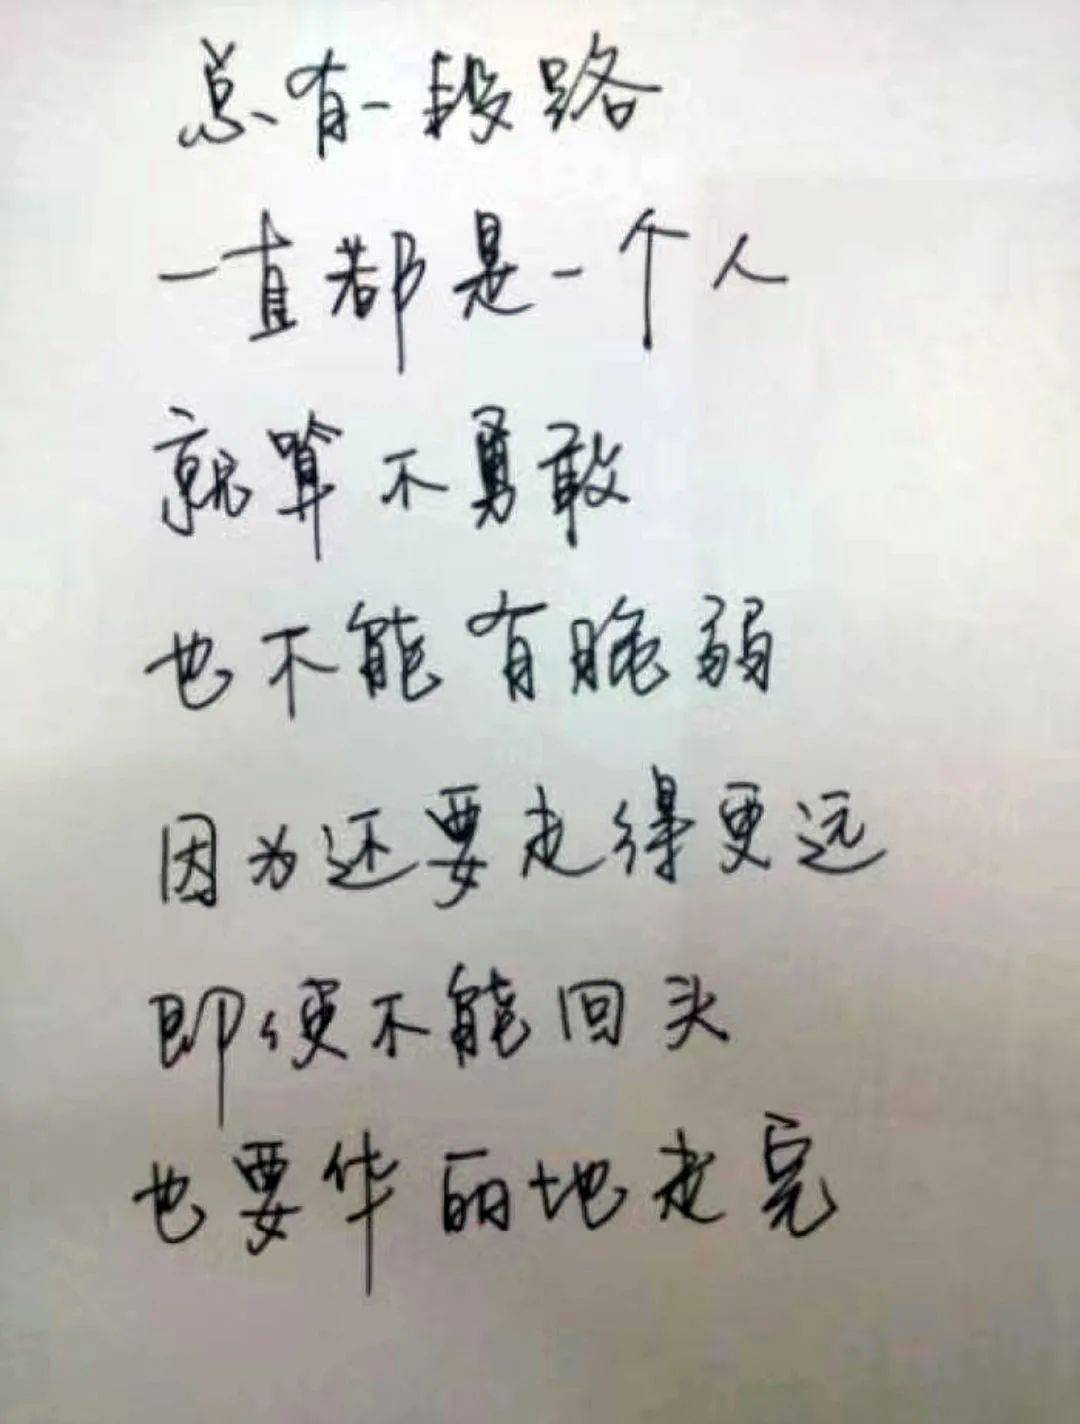 总有一段路
一直都是一个人
就算不勇敢
也不能有脆弱
因为还要走得更远
即便不能回头
也要华丽地走完